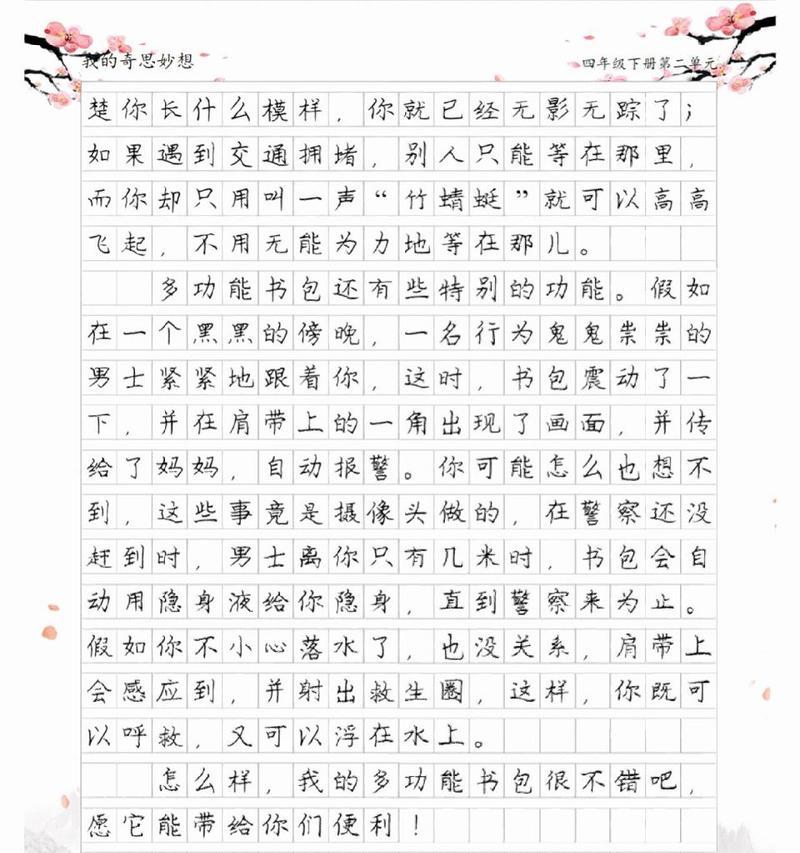 我的奇思妙想
四年级下册第二单元
楚你长什么模样，你就已经无影无踪了；
如果遇到交通拥堵，别人只能等在那里，
而你却只用叫一声“竹蜻蜓”就可以高高
飞起，不用无能为力地等在那儿。
多功能书包还有些特别的功能。假如
在一个黑黑的傍晚，一名行为鬼鬼祟祟的
男士紧紧地跟着你，这时，书包震动了一
下，并在肩带上的一角出现了画面，并传
给了妈妈，自动报警。你可能怎么也想不
到，这些事竟是摄像头做的，在警察还没
赶到时，男士离你只有几米时，书包会自
动用隐身液给你隐身，直到警察来为止。
假如你不小心落水了，也没关系，肩带上
会感应到，并射出救生圈，这样，你既可
以呼救，又可以浮在水上。
怎么样，我的多功能书包很不错吧，
愿它能带给你们便利！